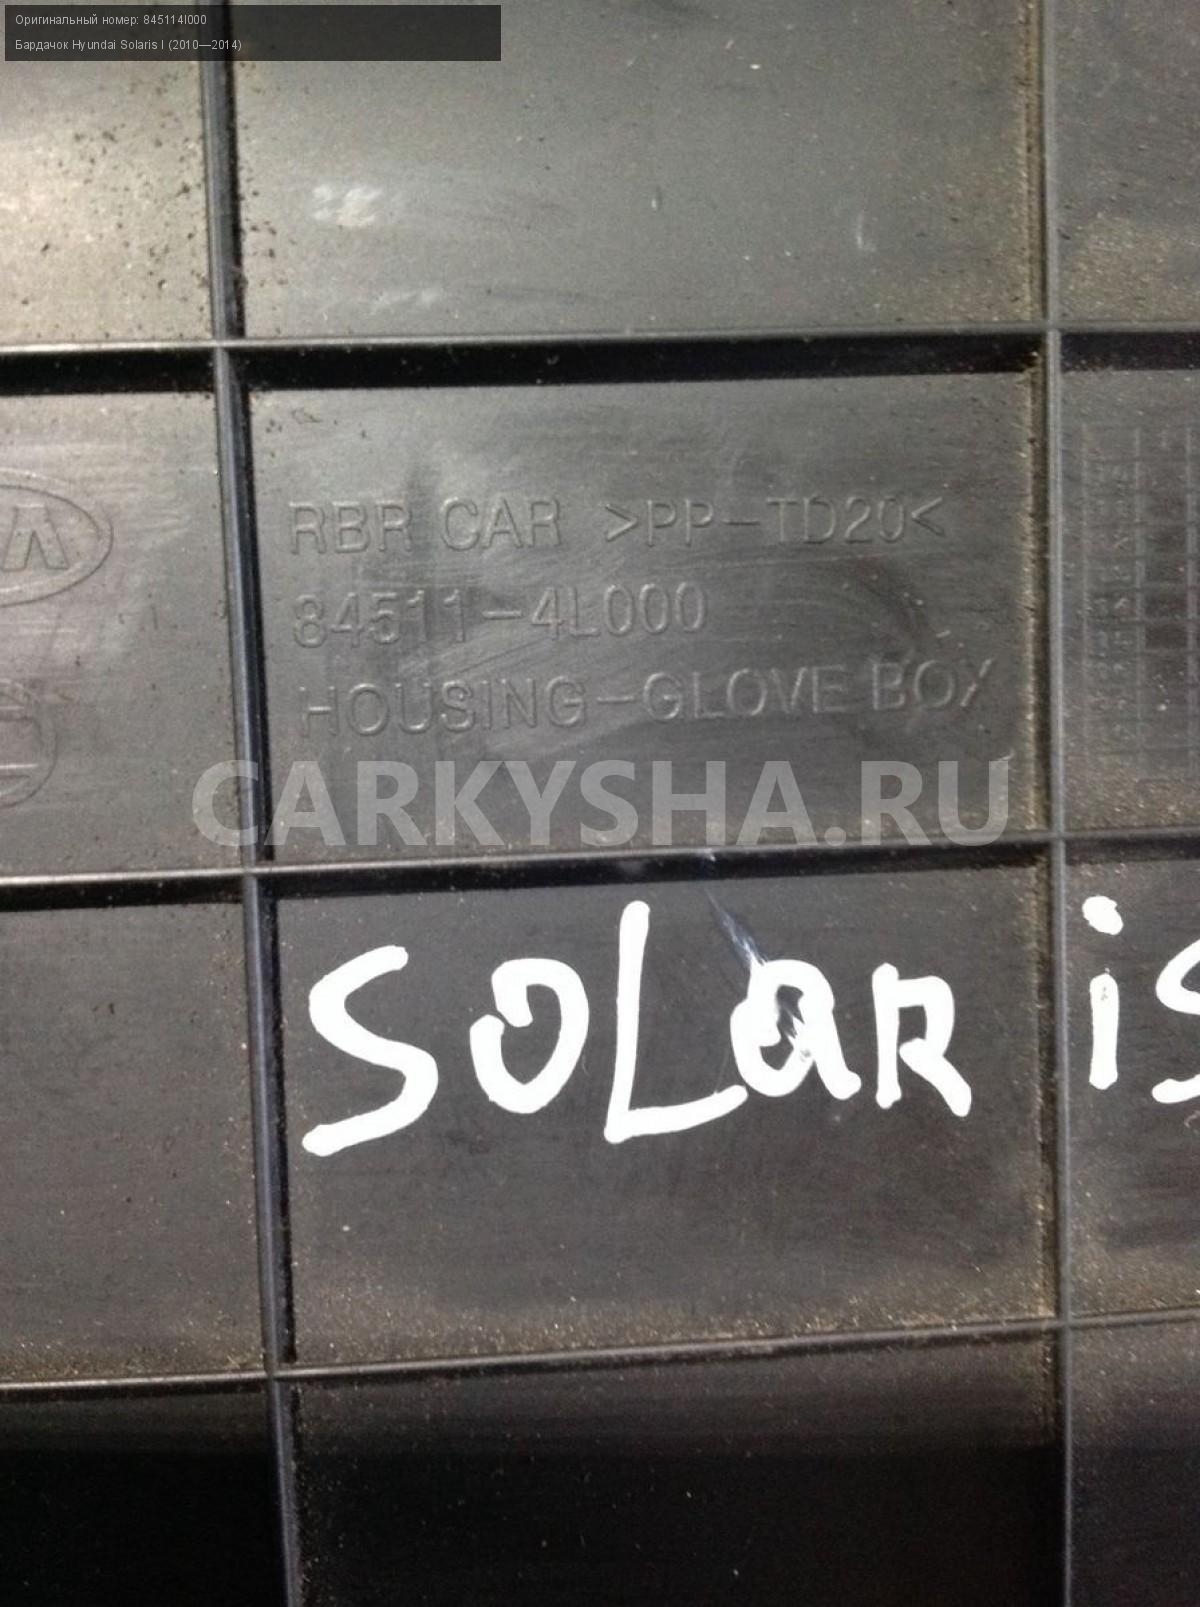 Оригинальный номер: 845114l000
Бардачок Hyundai Solaris I (2010—2014)
RBR CAR >PP-TD20<
84511-4L000
HOUSING-GLOVE BOX
CARKYSHA.RU
SOLaR is